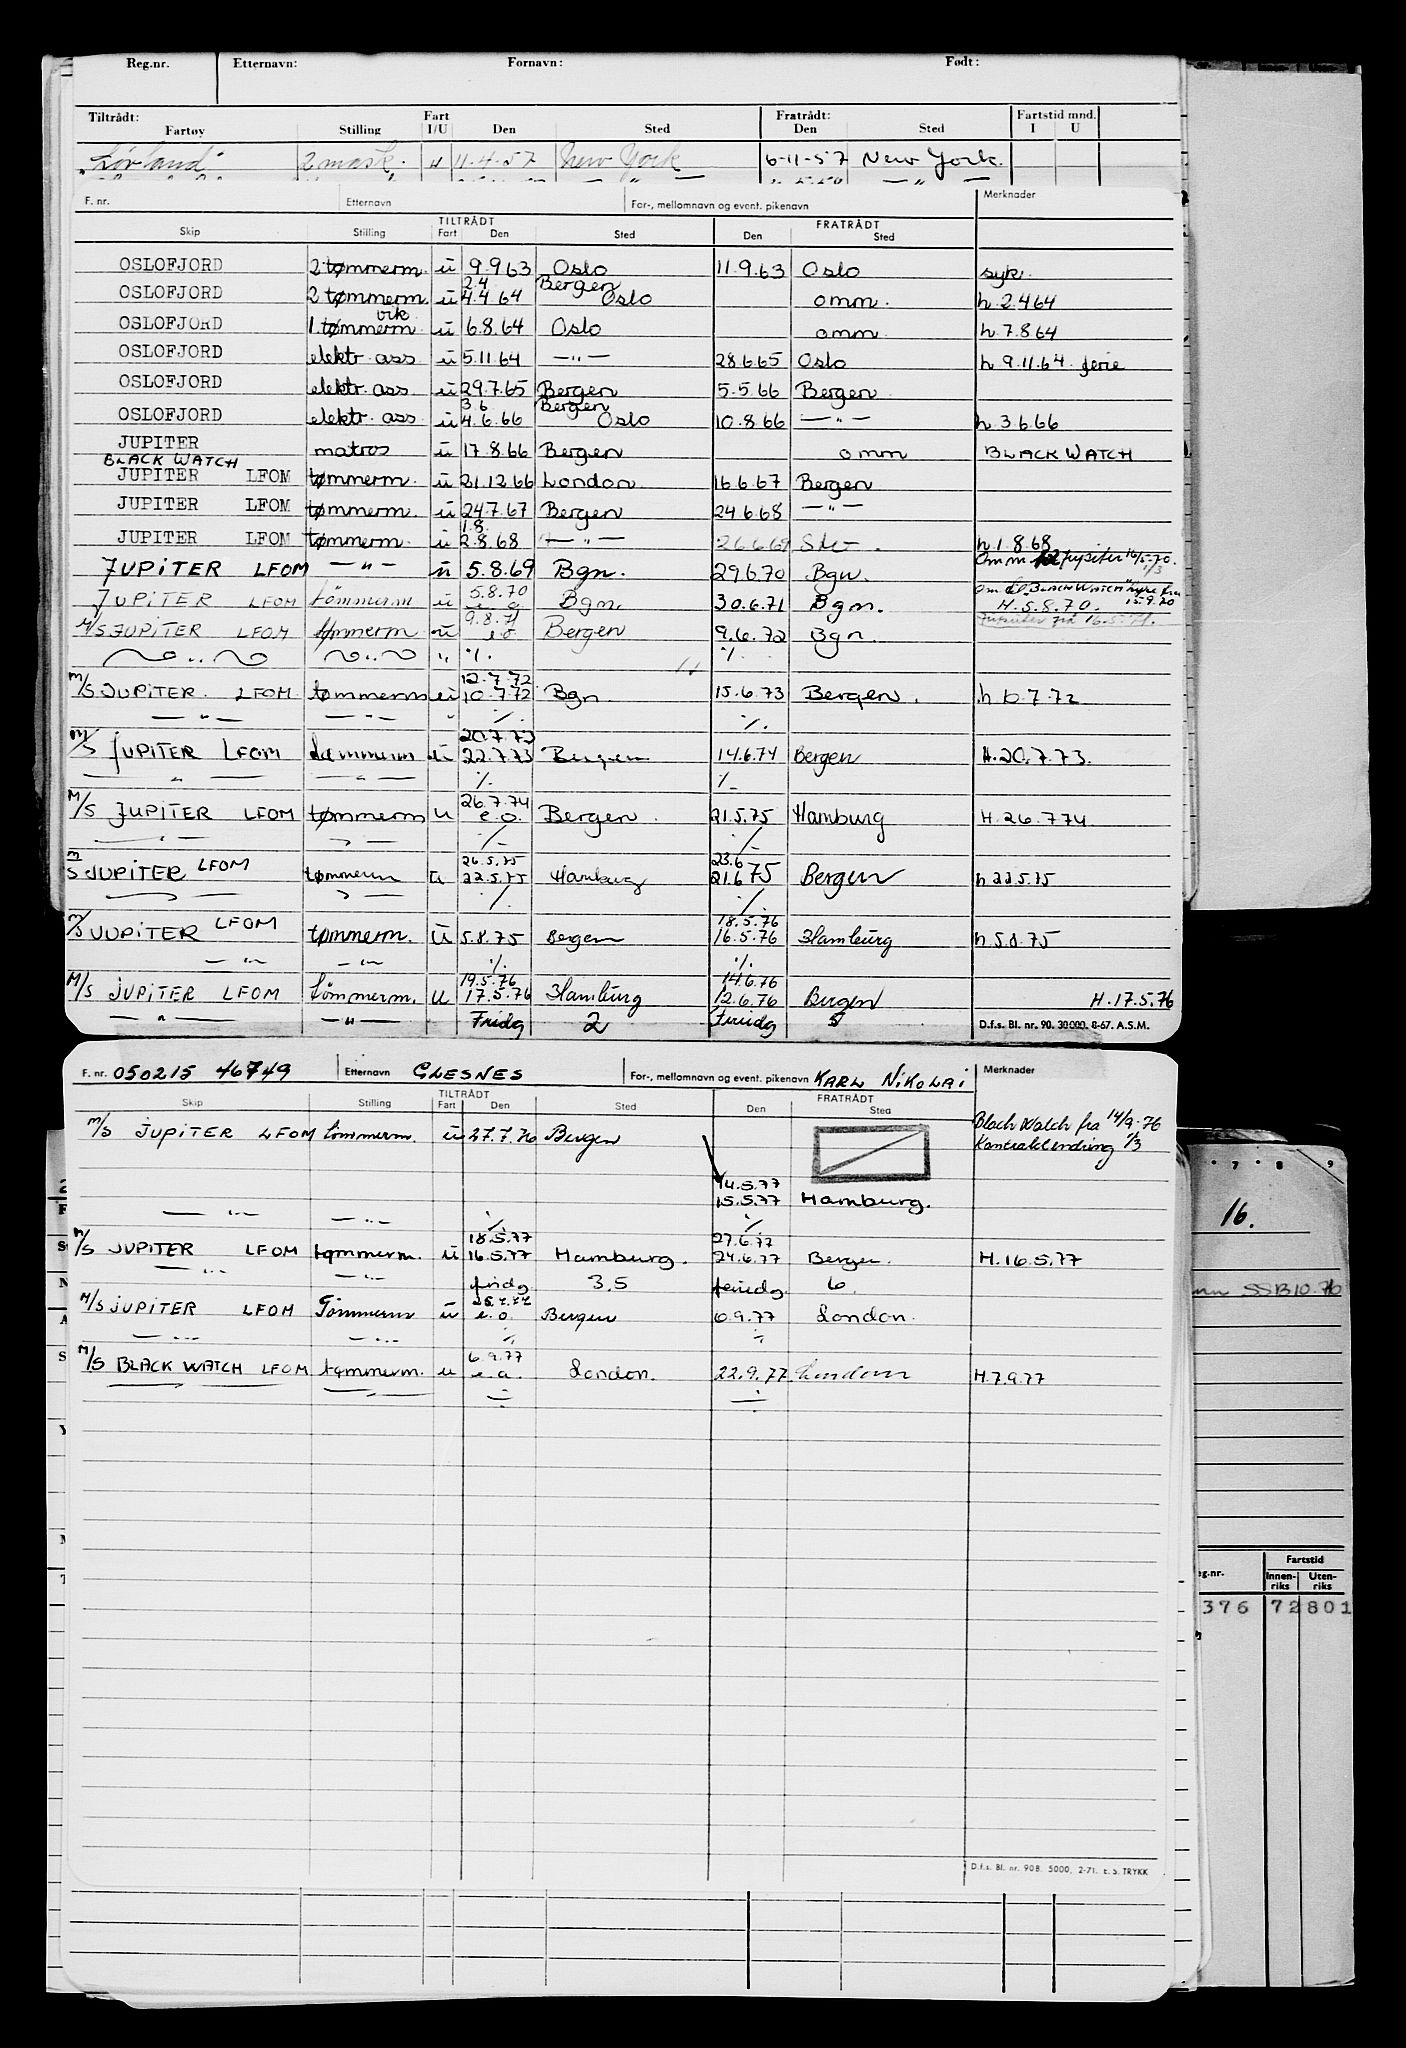 Reg.nr. Etternavn: Fornavn: Født:
Tiltrådt: Fart Fratrådt: Fartstid mnd.
Fartøy Stilling I/U Den Sted Den Sted I U
"Lørland" 2 mask. u 11-4-57 New York 6-11-57 New York.
F. nr. Etternavn For-, mellomnavn og event. pikenavn Merknader
TILTRÅDT FRATRÅDT
Skip Stilling Fart Den Sted Den Sted
OSLOFJORD 2 tømmerm. u 9.9.63 Oslo 11.9.63 Oslo syk.
2.4 Bergen
OSLOFJORD 2 tømmerm. u 4.4.64 Oslo omm. h. 2.4.64
vik.
OSLOFJORD 1. tømmerm u 6.8.64 Oslo omm. h. 7.8.64
OSLOFJORD elektr. ass u 5.11.64 —"— 28.6.65 Oslo h 9.11.64. ferie
OSLOFJORD elektr. ass u 29.7.65 Bergen 5.5.66 Bergen
3.6 Bergen
OSLOFJORD elektr. ass u 4.6.66 Oslo 10.8.66 —"— h. 3.6.66
JUPITER matros u 17.8.66 Bergen omm BLACK WATCH
BLACK WATCH
JUPITER LFOM tømmerm. u 21.12.66 London 16.6.67 Bergen
JUPITER LFOM tømmerm. u 24.7.67 Bergen 24.6.68 —"—
1.8.
JUPITER LFOM tømmerm. u 2.8.68 —"— 26.6.69 h 1.8.68
JUPITER LFOM —"— u 5.8.69 Bgn. 29.6.70 Bgn. Omm Jupiter 16/5-70. 1/3
5.8.70 Om til "BLACK WATCH" 15.9.70
JUPITER LFOM tömmerm u e.o. Bgn. 30.6.71 Bgn. H. 5.8.70.
9.8.71 Jupiter fra 16.5.71.
M/S JUPITER LFOM tømmerm u e.o. Bergen 9.6.72 Bgn.
" " " %. %.
12.7.72
M/S JUPITER. LFOM. tømmerm u 10.7.72 Bgn 15.6.73 Bergen. h 10.7.72
—"— —"— " %. %.
20.7.73
M/S JUPITER LFOM tømmerm u 22.7.73 Bergen 14.6.74 Bergen H.20.7.73.
—"— —"— %. %
26.7.74
M/S JUPITER LFOM tømmerm u e.o. Bergen. 21.5.75 Hamburg H.26.7.74.
—"— —"— %. %
26.5.75 23.6
M/S JUPITER LFOM tømmerm u 22.5.75 Hamburg 21.6.75 Bergen h 22.5.75
—"— —"— %. %.
18.5.76
M/S JUPITER LFOM tømmerm. u 5.8.75 Bergen 16.5.76 Hamburg h 5.8.75
—"— —"— %.
19.5.76 14.6.76
M/S JUPITER LFOM tömmerm. u 17.5.76 Hamburg 12.6.76 Bergen H.17.5.76
—"— —"— Fridg 2 Feriedg 5 D.f.s. Bl. nr. 90. 30000. 8-67. A.S.M.
F. nr. 050215 46749 Etternavn GLESNES For-, mellomnavn og event. pikenavn KARL NIKOLAI Merknader
TILTRÅDT FRATRÅDT
Skip Stilling Fart Den Sted Den Sted
M/S JUPITER LFOM tömmerm. u 27.7.76 Bergen Black Watch fra 14/9-76
Kontraktendring 1/3
14.5.77
15.5.77 Hamburg.
—"— —"— %. %
18.5.77 27.6.77
M/S JUPITER LFOM tømmerm. u 16.5.77 Hamburg. 24.6.77 Bergen. H.16.5.77
—"— —"— fridg 3.5 feriedg. 6.
25.7.77
M/S JUPITER LFOM Tömmerm u e.o. Bergen 6.9.77 London.
—"— —"— % %
6.9.77
M/S BLACK WATCH LFOM tømmerm. u e.o. London. 22.9.77. London H.7.9.77
—"— —"—
D.f.s. Bl. nr. 90B. 5000, 2-71. E. S. TRYKK
7 8 9
16.
SSB 10.76
eg.nr. Fartstid
Innen-riks Uten-riks
376 72 801